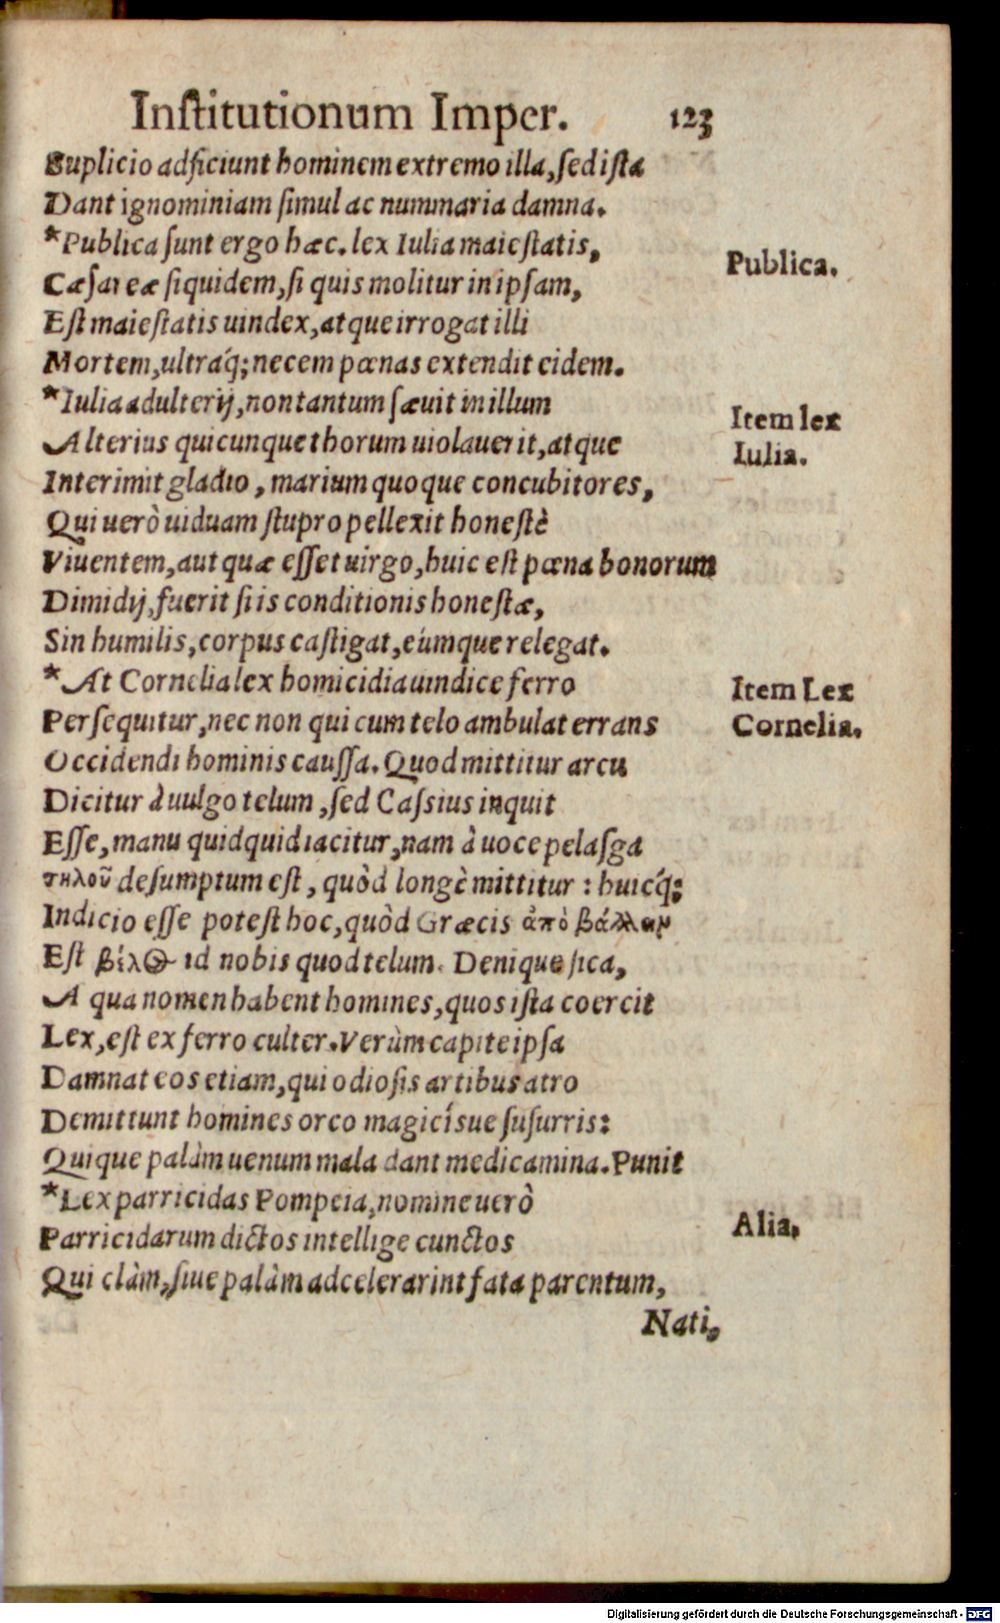 Inſtitutionum Imper. 123
Suplicio adficiunt hominem extremo illa, ſed iſta
Dant ignominiam ſimul ac nummaria damna.
*Publica ſunt ergo hæc. lex Iulia maieſtatis,
Publica.
Cæſareæ ſiquidem, ſi quis molitur in ipſam,
Eſt maieſtatis uindex, atque irrogat illi
Mortem, ultráq; necem pœnas extendit eidem.
*Iulia adulterij, non tantum ſæuit in illum
Item lex
Alterius quicunque thorum uiolauerit, atque
Iulia.
Interimit gladio, marium quoque concubitores,
Qui uerò uiduam ſtupro pellexit honeſtè
Viuentem, aut quæ eſſet uirgo, huic eſt pœna bonorum
Dimidij, fuerit ſi is conditionis honeſtæ,
Sin humilis, corpus caſtigat, eúmque relegat.
*At Cornelia lex homicidia uindice ferro
Item Lex
Perſequitur, nec non qui cum telo ambulat errans
Cornelia.
Occidendi hominis cauſſa. Quod mittitur arcu
Dicitur à uulgo telum, ſed Caſsius inquit
Eſſe, manu quidquid iacitur, nam à uoce pelaſga
τηλοῦ deſumptum eſt, quòd longè mittitur: huicq́;
Indicio eſſe poteſt hoc, quòd Græcis ἀπὸ βάλλειν
Eſt βέλος id nobis quod telum. Denique ſica,
A qua nomen habent homines, quos iſta coercit
Lex, eſt ex ferro culter. Verùm capite ipſa
Damnat eos etiam, qui odioſis artibus atro
Demittunt homines orco magicíſue ſuſurris:
Quique palàm uenum mala dant medicamina. Punit
*Lex parricidas Pompeia, nomine uerò
Alia.
Parricidarum dictos intellige cunctos
Qui clàm, ſiue palàm adcelerarint fata parentum,
Nati,
Digitalisierung gefördert durch die Deutsche Forschungsgemeinschaft - DFG